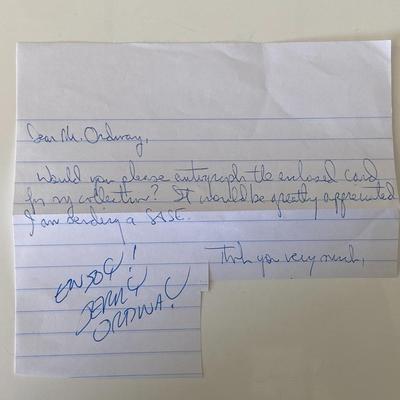 Dear Mr. Ordway,
Would you please autograph the enclosed card
for my collection? It would be greatly appreciated
I am sending a SASE.
Thank you very much,
ENJOY!
JERRY
ORDWAY